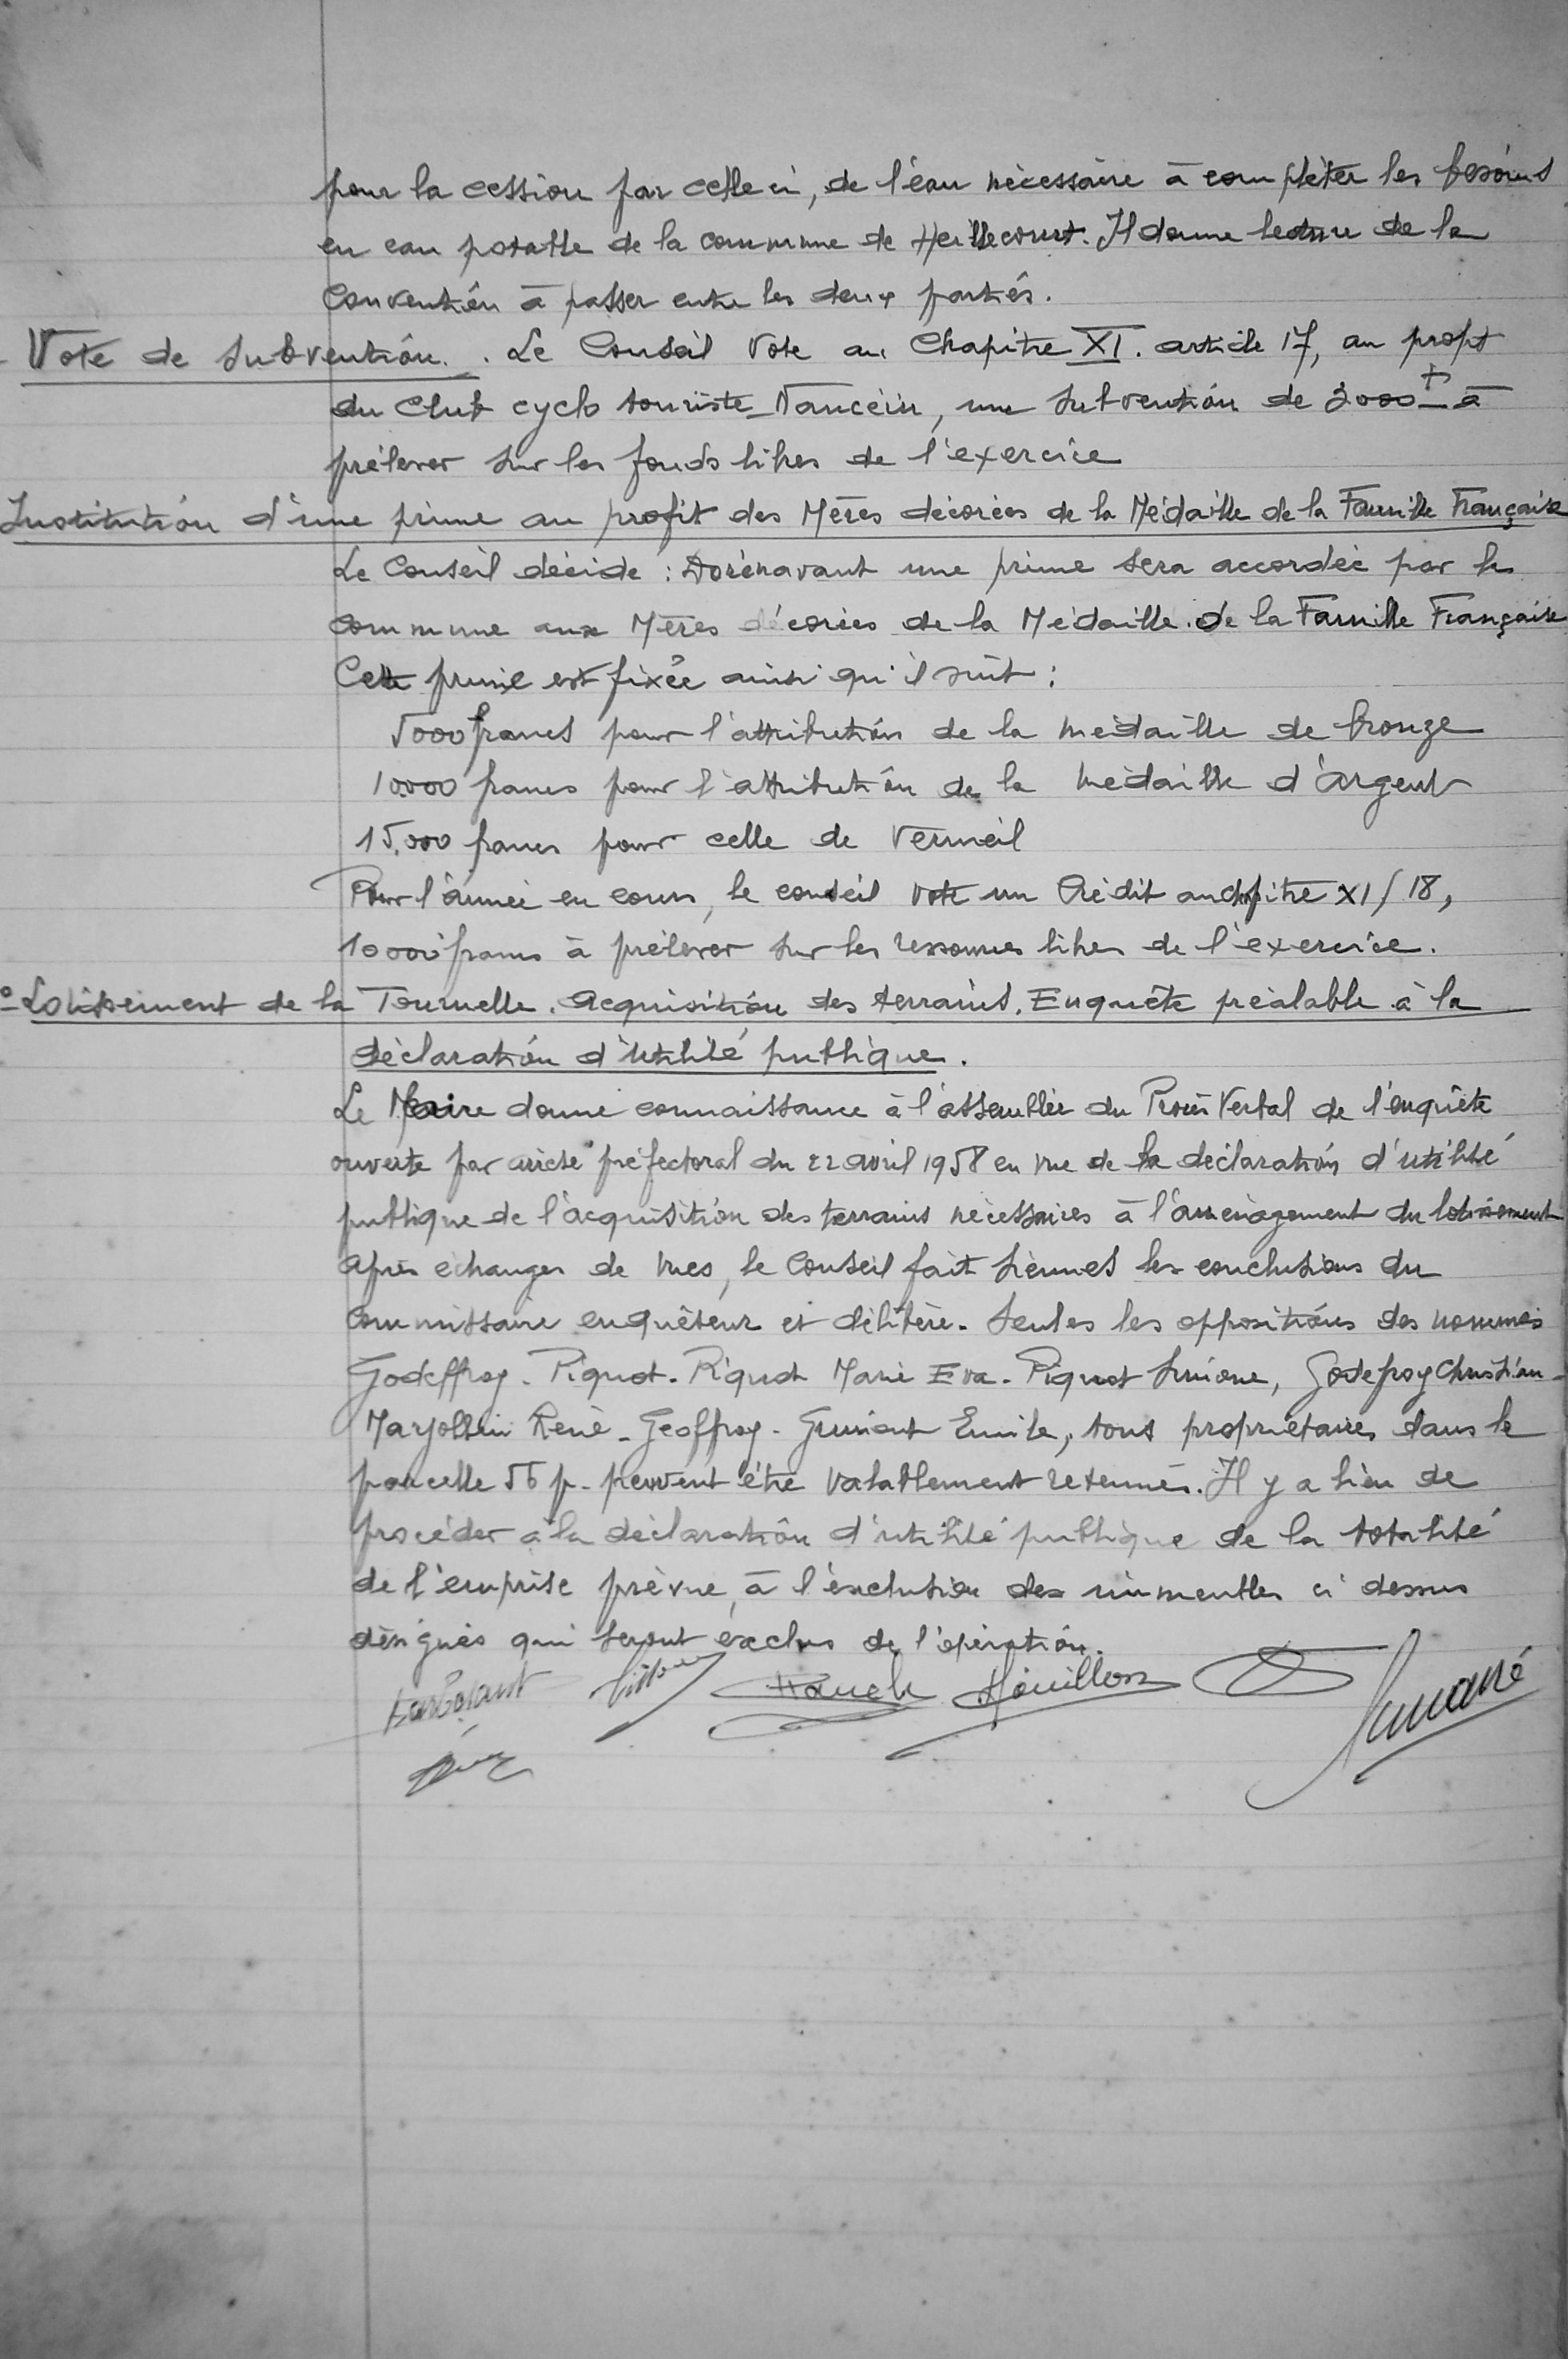 pour la cession par celle ci, de l'eau nécessaire à compléter les besoins
en eau potable de la commune de Heillecourt. Il donne lecture de la
Convention à passer entre les deux parties.
- Vote de subvention. . Le Conseil vote au Chapitre XI. article 17, au profit
du Club cyclo touriste Nancéin, une subvention de 2000 F à
prélever sur les fonds libres de l'exercice
Institution d'une prime au profit des Mères décorées de la Médaille de la Famille Française
Le Conseil décide : Dorénavant une prime sera accordée par la
commune aux Mères décorées de la Médaille de la Famille Française
Cette prime est fixée ainsi qu'il suit :
5000 francs pour l'attribution de la médaille de bronze
10.000 francs pour l'attribution de la médaille d'argent
15.000 francs pour celle de Vermeil
Pour l'année en cours, le conseil vote un Crédit au chapitre XI/18,
10000 francs à prélever sur les ressources libres de l'exercice.
°- Lotissement de la Tournelle. Acquisition des terrains. Enquête préalable à la
déclaration d'utilité publique.
Le Maire donne connaissance à l'assemblée du Procès Verbal de l'enquête
ouverte par arrêté préfectoral du 22 avril 1958 en vue de la déclaration d'utilité
publique de l'acquisition des terrains nécessaires à l'aménagement du lotissement
après échanges de vues, le Conseil fait siennes les conclusions du
Commissaire enquêteur et délibère. Seules les oppositions des nommés
Godeffroy. Piquot. Piquot Marie Eva. Piquot Simone, Godefroy Christian -
Marjollin René - Geoffroy - Emile, tous propriétaires dans la
parcelle 56 p. peuvent être valablement retenues. Il y a lieu de
procéder à la déclaration d'utilité publique de la totalité
de l'emprise prévue, à l'exclusion des immeubles ci dessus
désignés qui seront exclus de l'opération.
Hanck Houillon